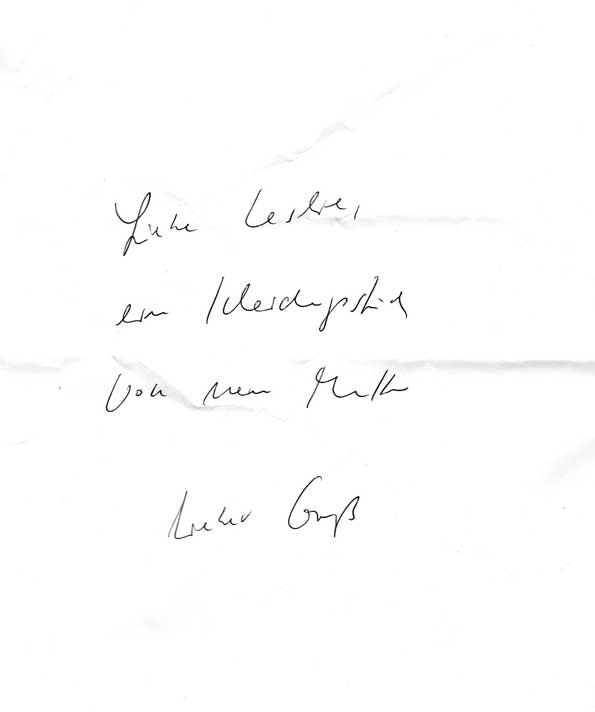 Liebe Leslie,
ein Kleidungsstück
von meiner Mutter
Lieber Gruß